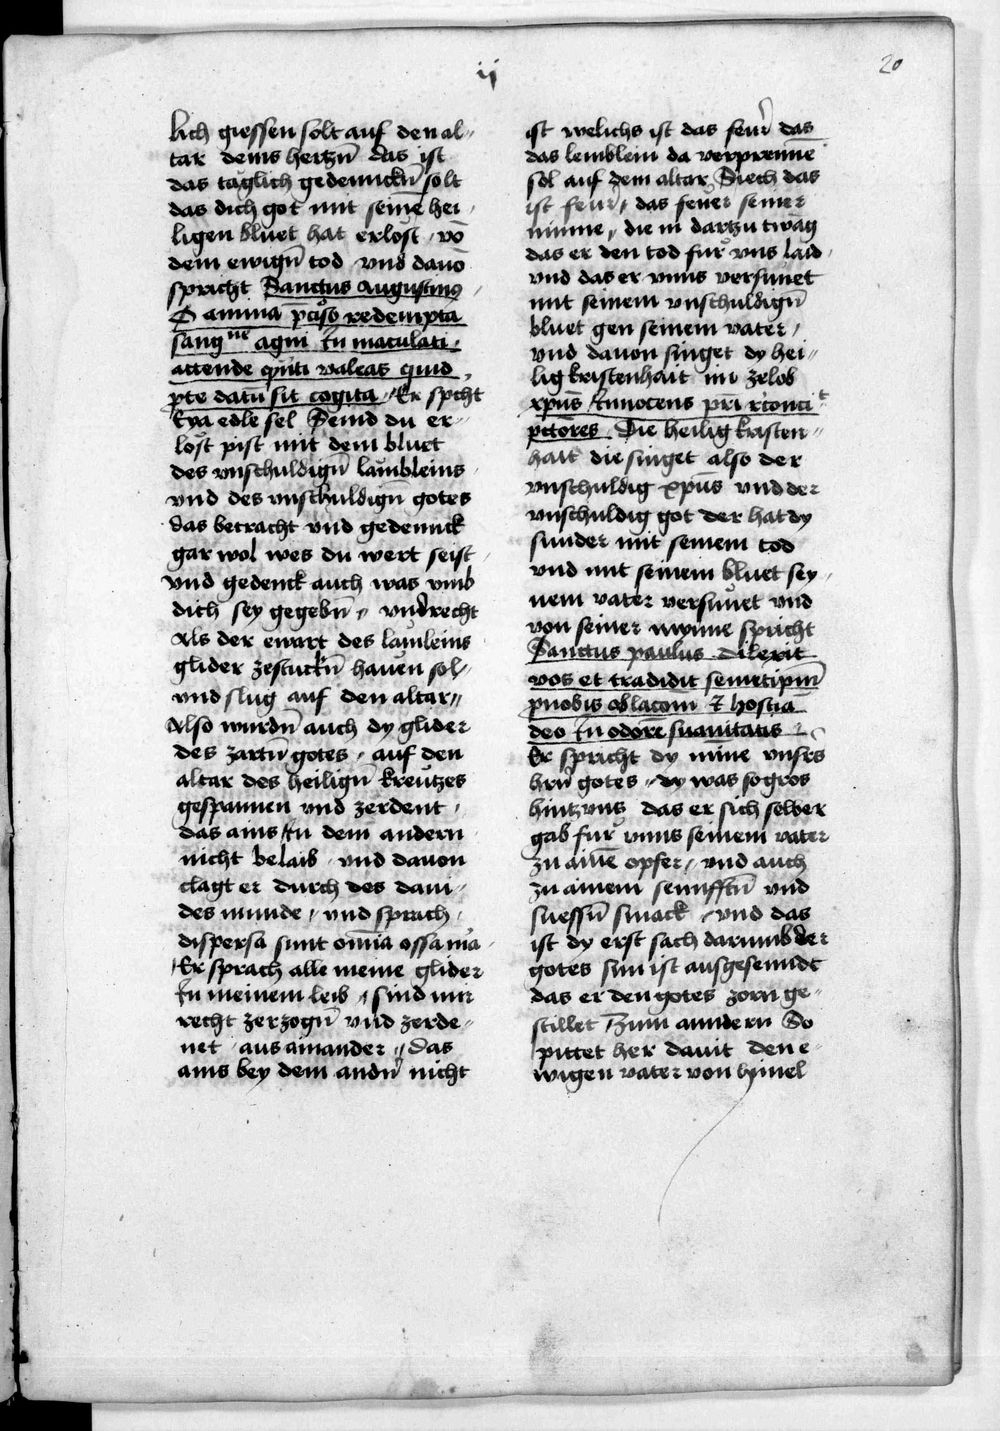 ij
20
lich giessen solt auf den al-
tar deins hertzn̄ das ist
das täglich gedennckn̄ solt
das dich got mit seinē hei-
ligen bluet hat erlöst / vō
dem ewign̄ tod / vnd dauō
spricht Sanctus Augustinus
O anima p̄ciosö redempta
sangne agni In maculati.
attende cuiꝰ valeas quid
pte datū sit cogita / Er spcht
Eya edle sel Seind du er-
löst pist mit dem bluet
des vnschuldign̄ lämbleins
vnd des vnschuldign̄ gotes
das betracht vnd gedennck
gar wol wes du wert seist
vnd gedenck auch was vmb
dich sey gegebn̄ / vnd recht
Als der ewart des läuleins
glider zestuckn̄ hauen sol-
vnd slug auf den altar
Also wurdn̄ auch dy glider
des zartn̄ gotes / auf den
altar des heilign̄ kreutzes
gespannen vnd zerdent
das ains In dem andern
nicht belaib / vnd dauon
clagt er durch des daui-
des munde / vnd sprach
dispersa sunt om̄ia ossa mͣa
Er sprach alle meine glider
In meinem leib / sind mir
recht zerzogn̄ vnd zerde-
net / aus ainander / Das
ains bey dem andn̄ nicht
ist welichs ist das feur das
das lemblein da verprennē
sol auf dem altar Siech das
ist feur / das feuer seiner
minne / die in dartzu twāg
das er den tod für vns laid
vnd das er vnns versünet
mit seinem vnschuldign̄
bluet gen seinem vater /
vnd dauon singet dy hei-
lig kristenhait im zelob
xpus Innocens pr̄i rconci
pctores Die heilig kristen-
hait die singet also der
vnschuldig xpūs vnd der
vnschuldig got der hat dy
sunder mit seinem tod
vnd mit seinem bluet sey-
nem vater versünet vnd
von seiner mynne spricht
Sanctus paulus dilexit
vos et tradidit semetipm̄
pnobis oblacōm ⁊ hostiā
deo In odorē suauitatis
Er spricht dy mine vnsrs
hrn̄ gotes / dy was so gros
hintz vns das er sich selber
gab für vnns seinem vater
zu ainē opfer / vnd auch
zu ainem sennfftn̄ vnd
suessn̄ smack / vnd das
ist dy erst sach darumb der
gotes sun ist ausgesenndt
das er den gotes zorn ge-
stillet Zum anndern So
pittet her dauit den e-
wigen vater von hymel